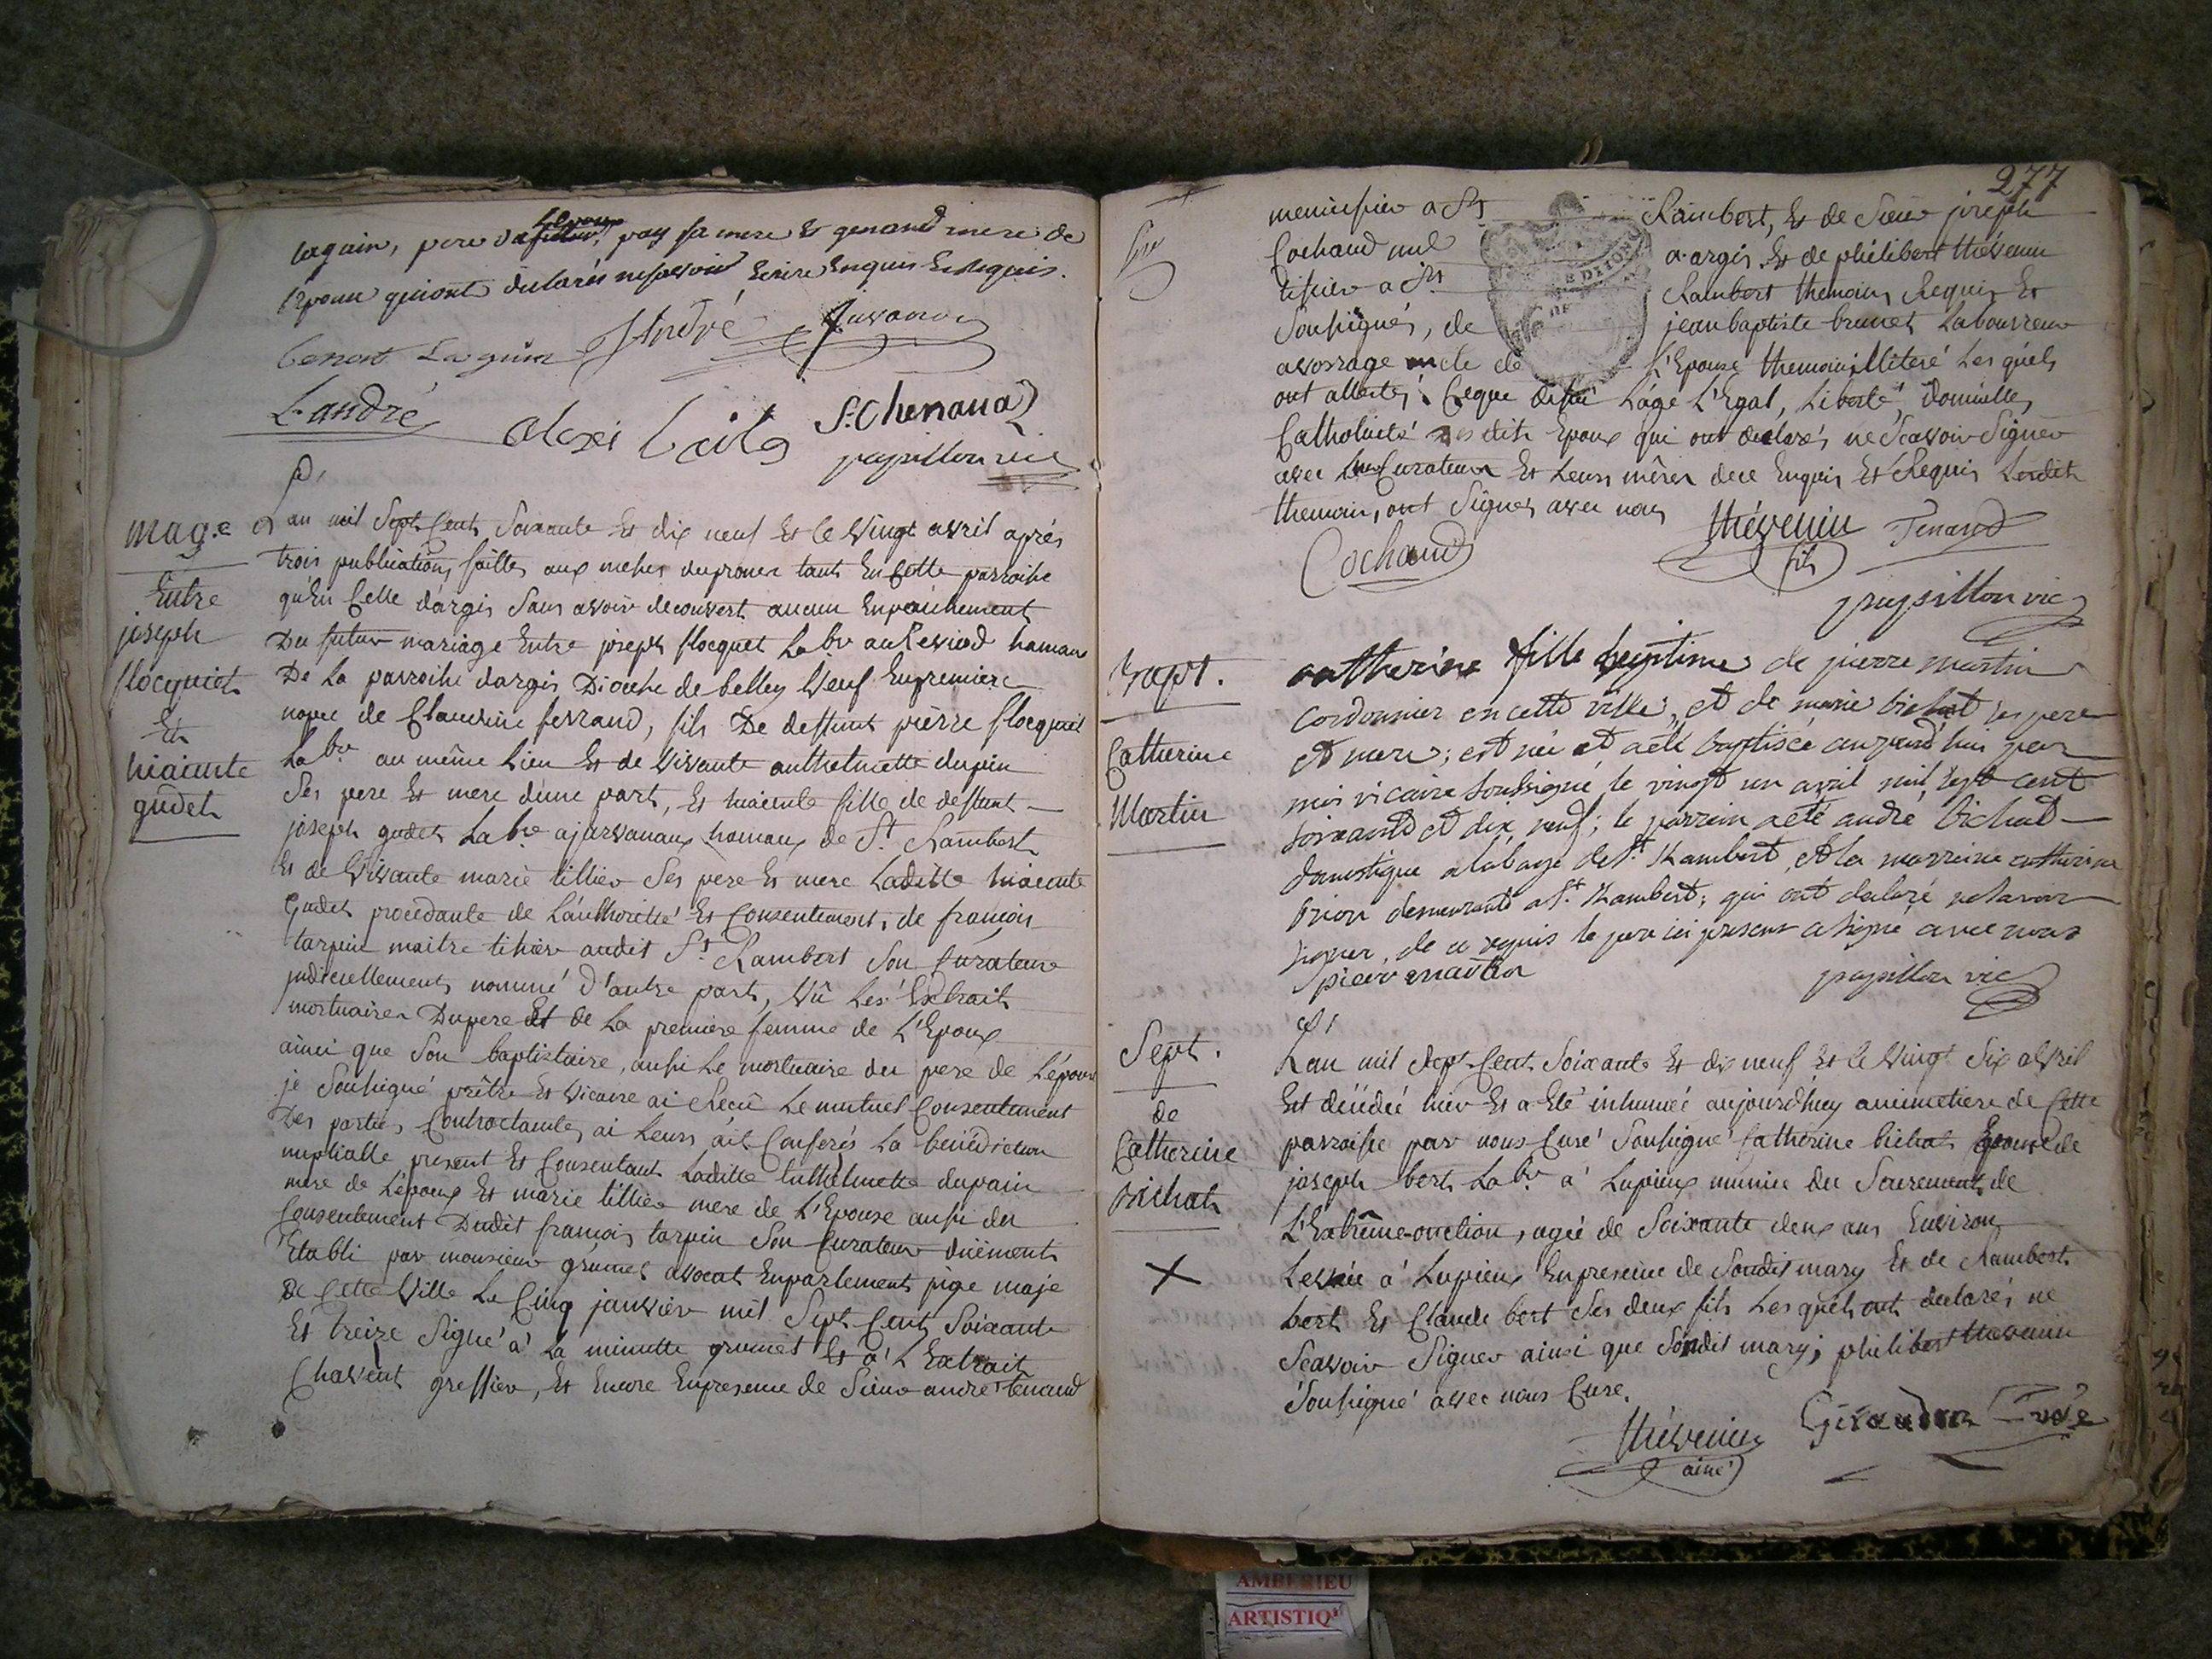 lagain, pere de
l'epoux
pay sa mere et grand mere de
l'Epoux qui ont declarés ne scavoir Ecrire Enquis Et Requis.
benoit Laguin J André Juvanon
L. andré alexi baila S. Chenavaz
papillon vic
mag.e
Entre
joseph
flocquet
Et
hiacinte
gudet
L'an mil Sept Cent Soixante Et dix neuf Et le Vingt avril après
trois publications faittes aux messes du prone tant En Cette parroisse
qu'En Celle d'argis Sans avoir decouvert aucun Enpeichement
Du futur mariage Entre joseph flocquet Labr au Reviod hameau
De La parroisse d'argis Diocèse de belley Veuf En premiere
nopce de Claudine ferrand, fils De deffunt pierre flocquet
Labr au même Lieu Et de Vivante anthelmette dupin
Ses pere Et mere d'une part, Et hiacinte fille de deffunt
joseph gudet Labr a javanaux hameau de St. Rambert
Et de Vivante marie tillier Ses pere Et mere Laditte hiacinte
Gudet procedante de L'authoritté Et Consentement, de francois
tarpin maitre tissier audit St. Rambert Son Curateur
judiciellement nommé d'autre part, Vû Les Extrait
mortuaires Du pere Et de La premiere femme de L'Epoux
ainsi que Son baptistaire, aussi Le mortuaire du pere de L'épouse
je Soussigné prêtre Et Vicaire ai Recû Le mutuel Consentement
Des parties Contractantes ai Leurs ait Conferés La benediction
nuptialle present Et Consentant Laditte anthelmette dupain
mere de L'époux Et marie tillier mere de L'Epouse aussi du
Consentement Dudit francois tarpin Son Curateur duëment
Etabli par monsieur grumet avocat Enparlement juge maje
De Cette Ville Le Cinq janvier mil Sept Cent Soixante
Et treize Signé à La minutte grumet Et a L'Extrait
Chavent greffier, Et Encore Enpresence de Sieur andré tenand
277
menuisier a St Rambert, Et de Sieur joseph
Cochaud a argis Et de philibert thévenin
tissier a St Rambert themoins Requis Et
Soussignés, de jean baptiste brunet Laboureur
a de L'Epouse themoin illiteré Les quels
ont attestés Ceque dessu L'age L'Egal, Liberté, Domicille,
Catholicité des dits Epoux qui ont declarés ne Scavoir Signer
avec Curateur Et Leurs mêres dece Enquis Et Requis Lesdits
themoins, ont Signés avec nous
Cochaud thévenin fils Tenand
papillon vic
Bapt.
Catherine
Martin
catherine fille legitime de pierre martin
cordonnier en cette ville, et de marie bichat ses pere
et mere; est née et a été baptisée aujourd'hui par
moi vicaire soussigné le vingt un avril mil sept cent
soixante et dix neuf; le parrein a été andré bichat
domestique a l'abaye de St. Rambert, et la marreine catherine
brion demeurante a St. Rambert; qui ont declaré ne savoir
signer, de ce requis le pere ici present a signé avec nous
piere martin papillon vic
Sept.
de
Catherine
bichat
L'an mil Sept Cent Soixante Et dix neuf Et le Vingt Six avril
Est décédée hier Et a Eté inhumée aujourd'huy au cimetiere de Cette
parroisse par nous Curé Soussigné Catherine bichat Epouse de
joseph bert Labr à Lupieux munie du Sacrement, de
L'Extrême-onction, agée de Soixante deux ans Environ
Levée à Lupieux Enpresence de Sondit mary Et de Rambert
bert Et Claude bert Ses deux fils Les quels ont declarés ne
Scavoir Signer ainsi que Sondit mary; philibert thevenin
Soussigné avec nous Curé.
thévenin ainé
AMBERIEU
ARTISTIQ